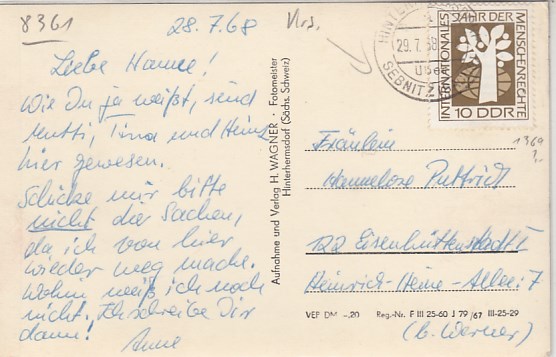 8361
28.7.68
Liebe Hanne!
Wie Du ja weißt, sind
Mutti, Tina und Heinz
hier gewesen.
Schicke mir bitte
nicht die Sachen,
da ich von hier
wieder weg mache.
Wohin weiß ich noch
nicht. Ich schreibe Dir
dann!
Anne
Aufnahme und Verlag H. WAGNER · Fotomeister
Hinterhermsdorf (Sächs. Schweiz)
29.7.68
über
SEBNITZ
INTERNATIONALES JAHR DER MENSCHENRECHTE
10 DDR
1369
?
Fräulein
Hannelore Puttrich
122 Eisenhüttenstadt I
Heinrich-Heine-Allee: 7
(b. Werner)
VEP DM -,20 Reg.-Nr. F III 25-60 J 79/67 III-25-29